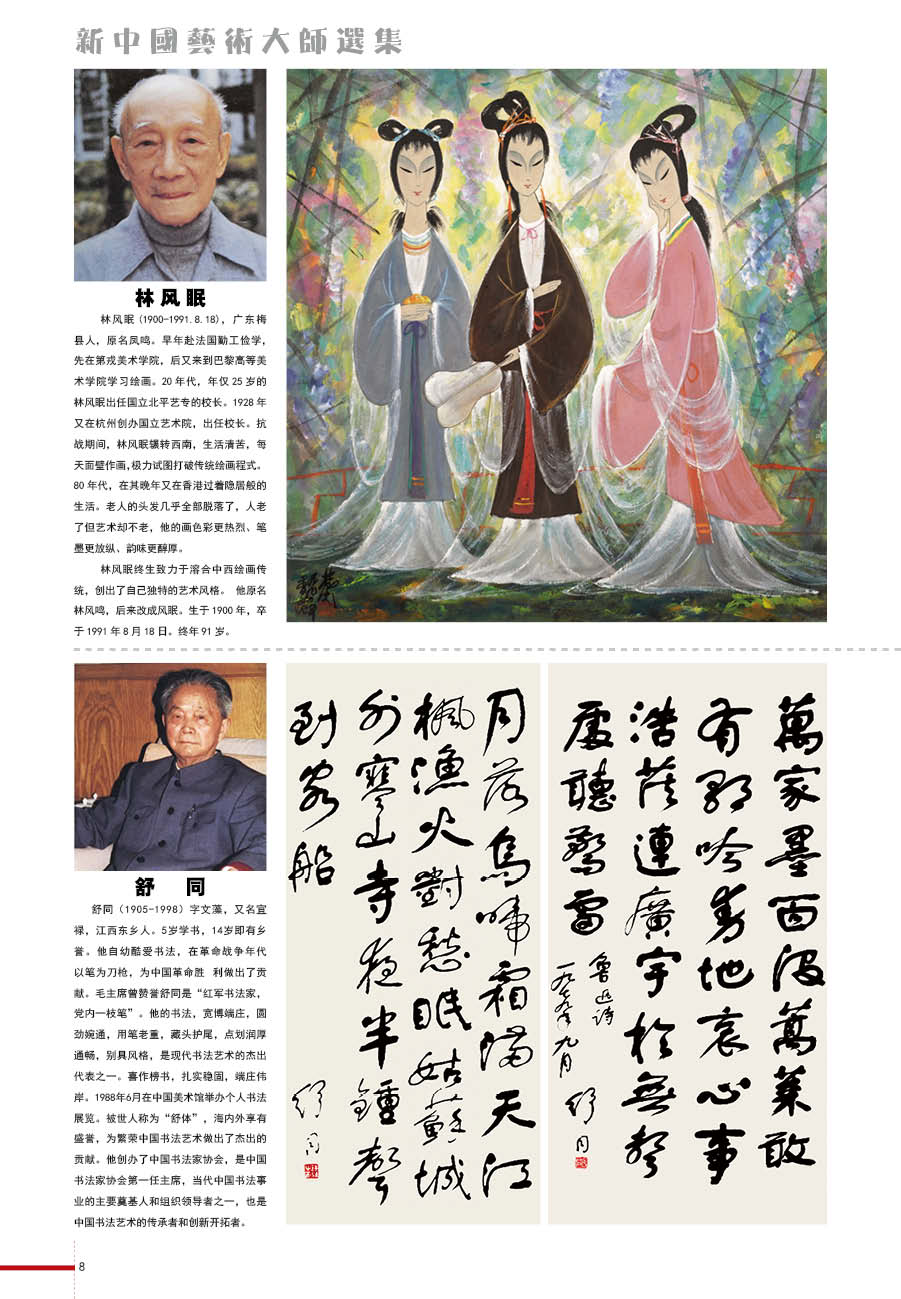 新中國藝術大師選集
林风眠
林风眠(1900-1991.8.18)，广东梅
县人，原名凤鸣。早年赴法国勤工俭学，
先在第戎美术学院，后又来到巴黎高等美
术学院学习绘画。20 年代，年仅 25 岁的
林风眠出任国立北平艺专的校长。1928 年
又在杭州创办国立艺术院，出任校长。抗
战期间，林风眠辗转西南，生活清苦，每
天面壁作画，极力试图打破传统绘画程式。
80 年代，在其晚年又在香港过着隐居般的
生活。老人的头发几乎全部脱落了，人老
了但艺术却不老，他的画色彩更热烈、笔
墨更放纵、韵味更醇厚。
林风眠终生致力于溶合中西绘画传
统，创出了自己独特的艺术风格。 他原名
林风鸣，后来改成风眠。生于 1900 年，卒
于 1991 年 8 月 18 日。终年 91 岁。
舒 同
舒同（1905-1998）字文藻，又名宜
禄，江西东乡人。5岁学书，14岁即有乡
誉。他自幼酷爱书法，在革命战争年代
以笔为刀枪，为中国革命胜 利做出了贡
献。毛主席曾赞誉舒同是“红军书法家，
党内一枝笔”。他的书法，宽博端庄，圆
劲婉通，用笔老重，藏头护尾，点划润厚
通畅，别具风格，是现代书法艺术的杰出
代表之一。喜作榜书，扎实稳固，端庄伟
岸。1988年6月在中国美术馆举办个人书法
展览。被世人称为“舒体”，海内外享有
盛誉，为繁荣中国书法艺术做出了杰出的
贡献。他创办了中国书法家协会，是中国
书法家协会第一任主席，当代中国书法事
业的主要奠基人和组织领导者之一，也是
中国书法艺术的传承者和创新开拓者。
月落烏啼霜滿天江
楓漁火對愁眠姑蘇城
外寒山寺夜半鍾聲
到客船
舒同
萬家墨面沒蒿萊敢
有歌吟動地哀心事
浩茫連廣宇於無聲
處聽驚雷
魯迅詩
一九七九年九月
舒同
8